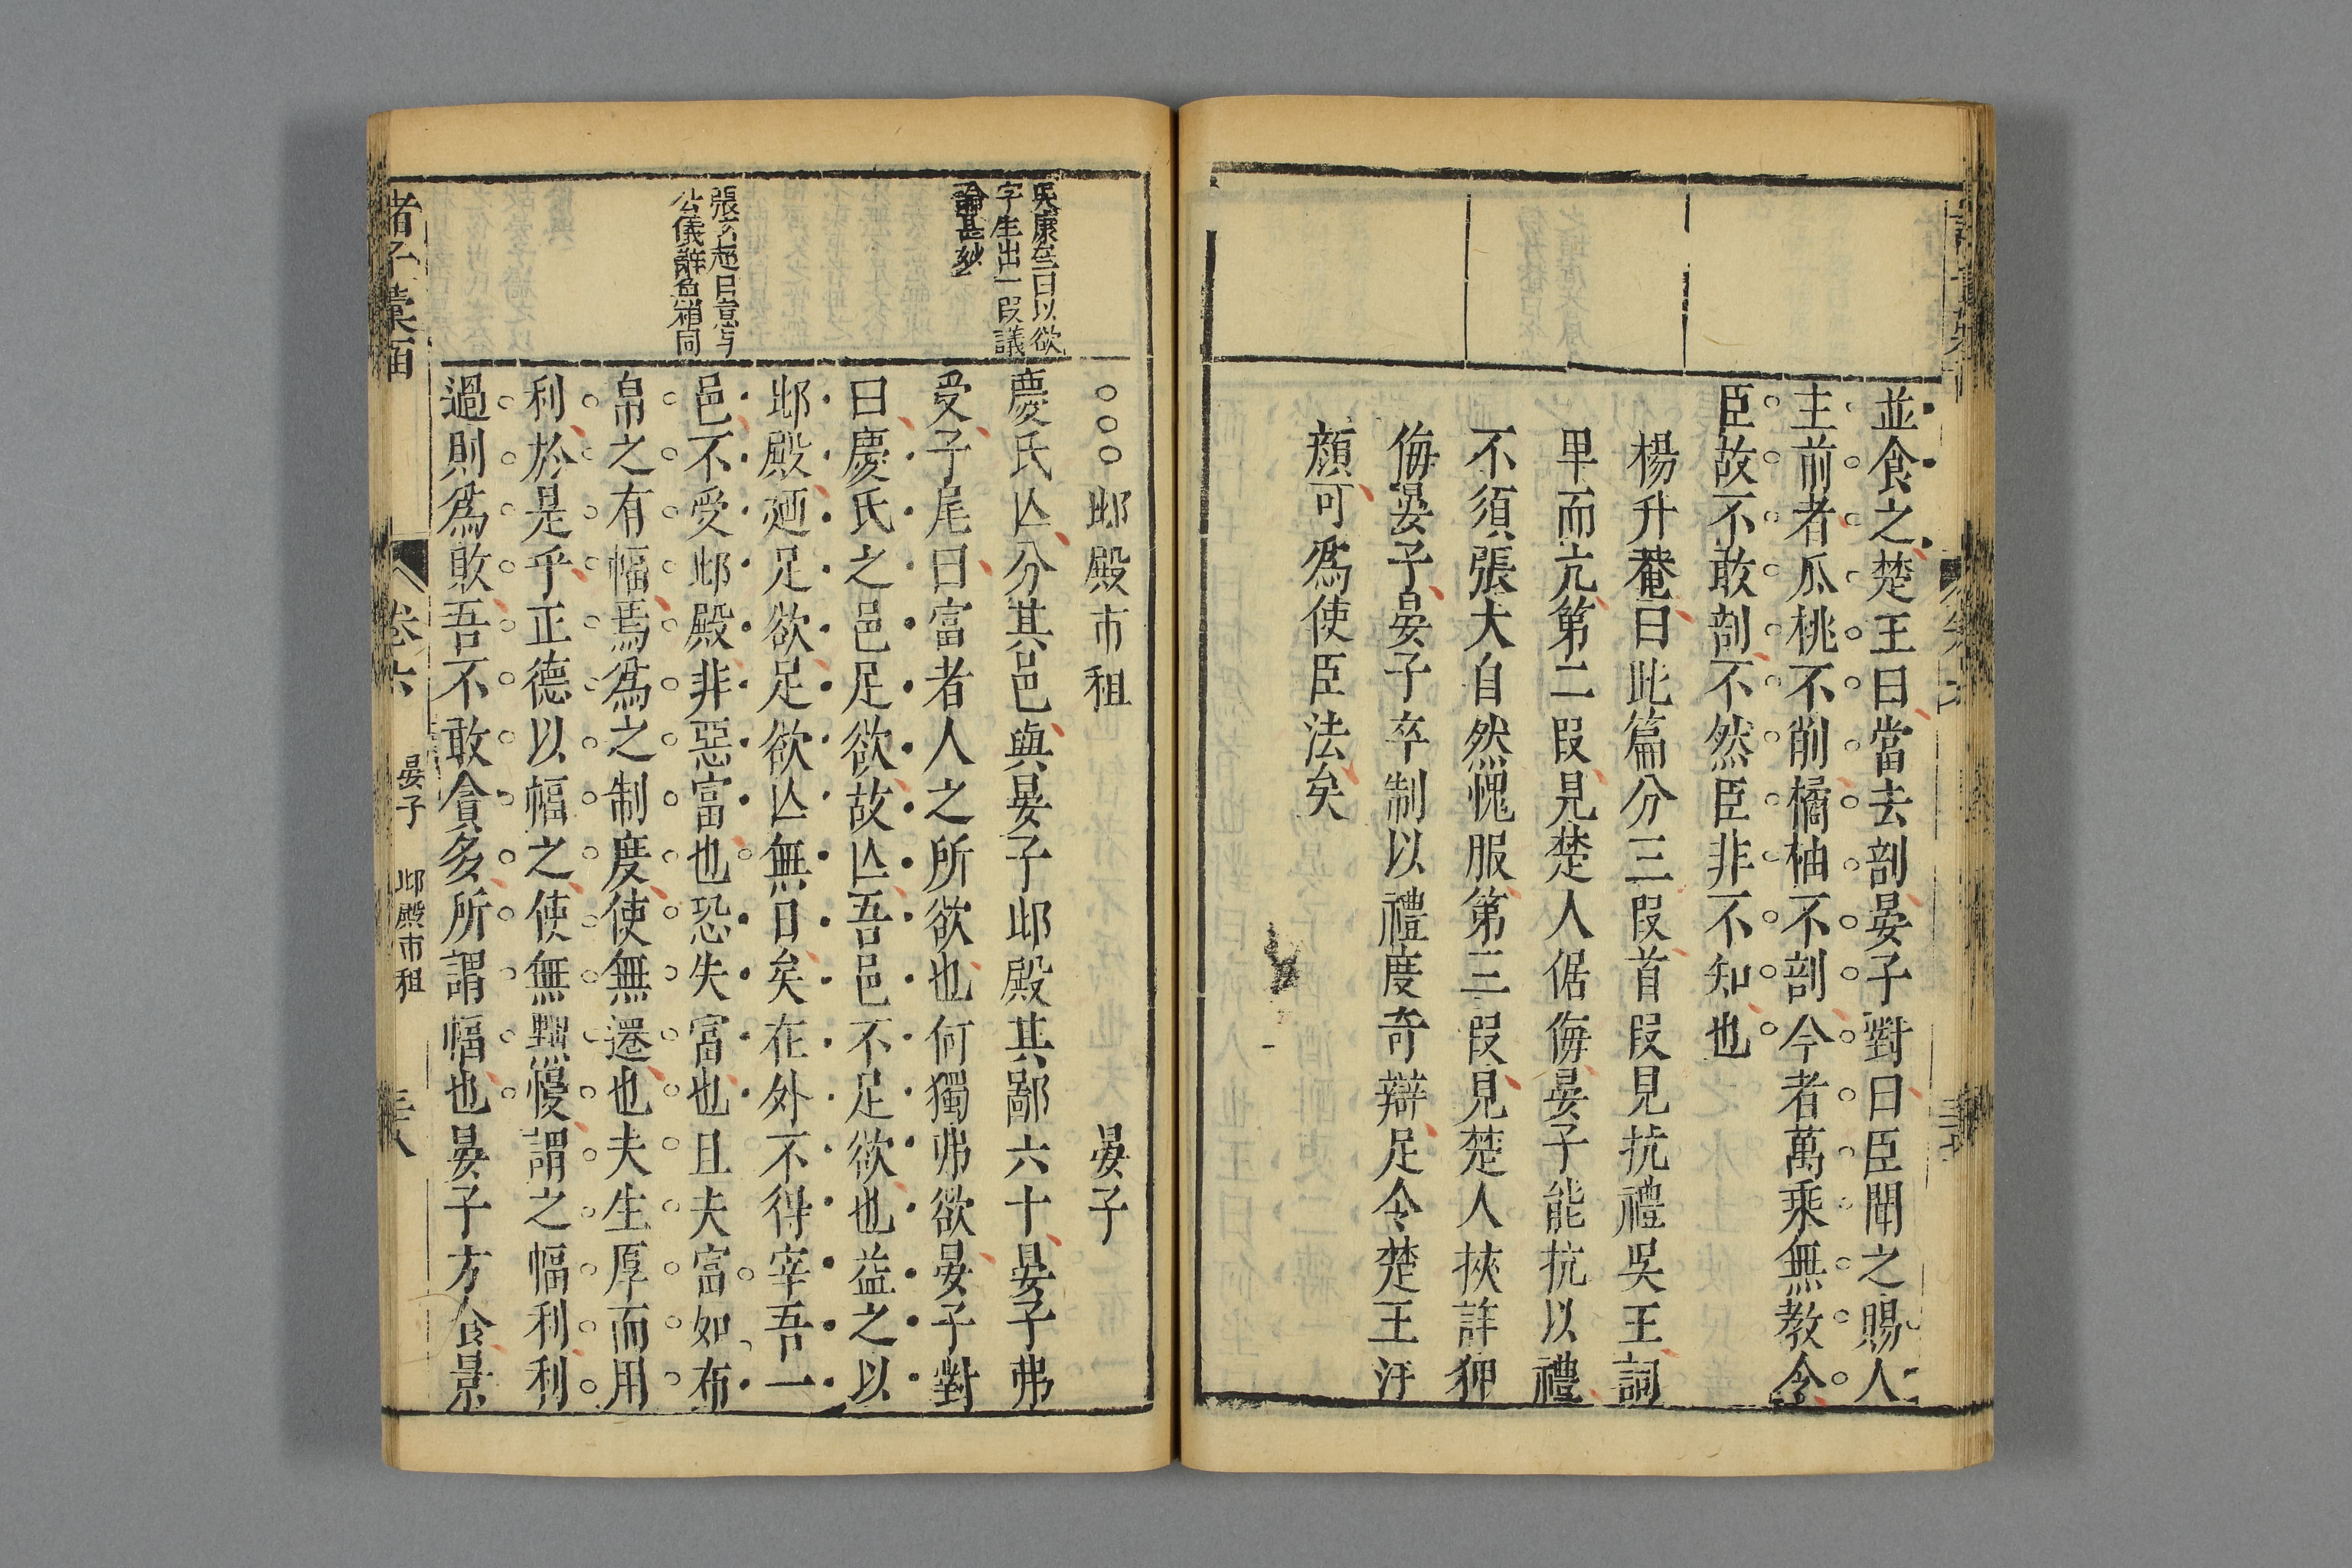 並食之楚王曰當去剖晏子對曰臣聞之賜人
主前者瓜桃不削橘柚不剖今者萬乘無教令
臣故不敢剖不然臣非不知也
楊升菴曰此篇分三段首段見抗禮吳王詞
卑而亢第二段見楚人倨侮晏子能抗以禮
不須張大自然愧服第三段見楚人挾詐狎
侮晏子晏子卒制以禮度奇辯足令楚王汗
顏可為使臣法矣
○○○邶殿市租 晏子
吳康𡊮曰以欲
字生出一段議
論甚妙
慶氏亾分其邑與晏子邶殿其鄙六十晏子弗
受子尾曰富者人之所欲也何獨弗欲晏子對
曰慶氏之邑足欲故亾吾邑不足欲也益之以
邶殿廼足欲足欲亾無日矣在外不得宰吾一
張玄超曰意与
公儀辭魚相同
邑不受邶殿非惡富也恐失富也且夫富如布
帛之有幅焉爲之制度使無遷也夫生厚而用
利於是乎正德以幅之使無黜慢謂之幅利利
過則爲敗吾不敢貪多所謂幅也晏子方食景
諸子彙函 卷六 晏子 邶殿市租 三八